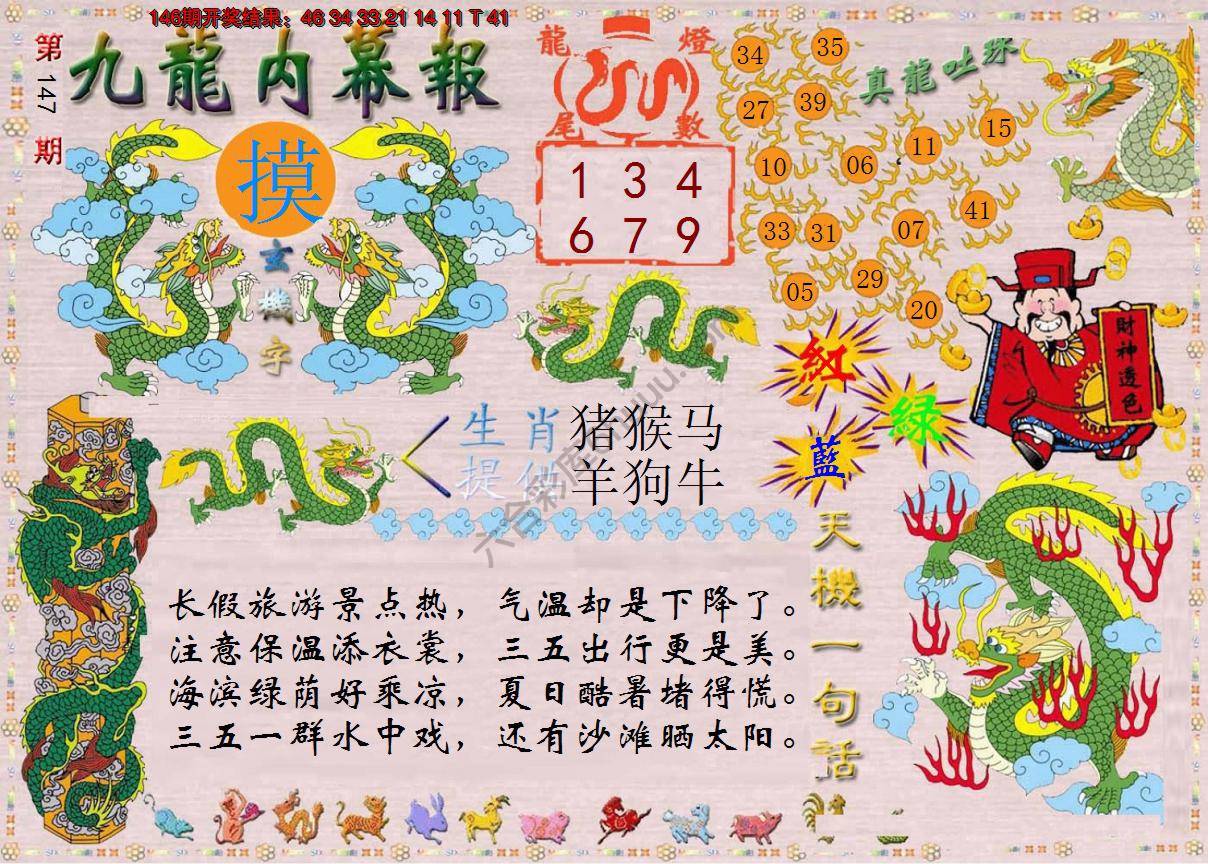 146期开奖结果：46 34 33 21 14 11 T 41
第147期
九龍内幕報
摸
玄機字
龍燈
尾數
1 3 4
6 7 9
真龍吐珠
34 35
27 39
10 06 11 15
33 31 07 41
05 29 20
財神透色
紅
綠
藍
生肖 猪猴马
提供 羊狗牛
天機一句話
长假旅游景点热，气温却是下降了。
注意保温添衣裳，三五出行更是美。
海滨绿荫好乘凉，夏日酷暑堵得慌。
三五一群水中戏，还有沙滩晒太阳。